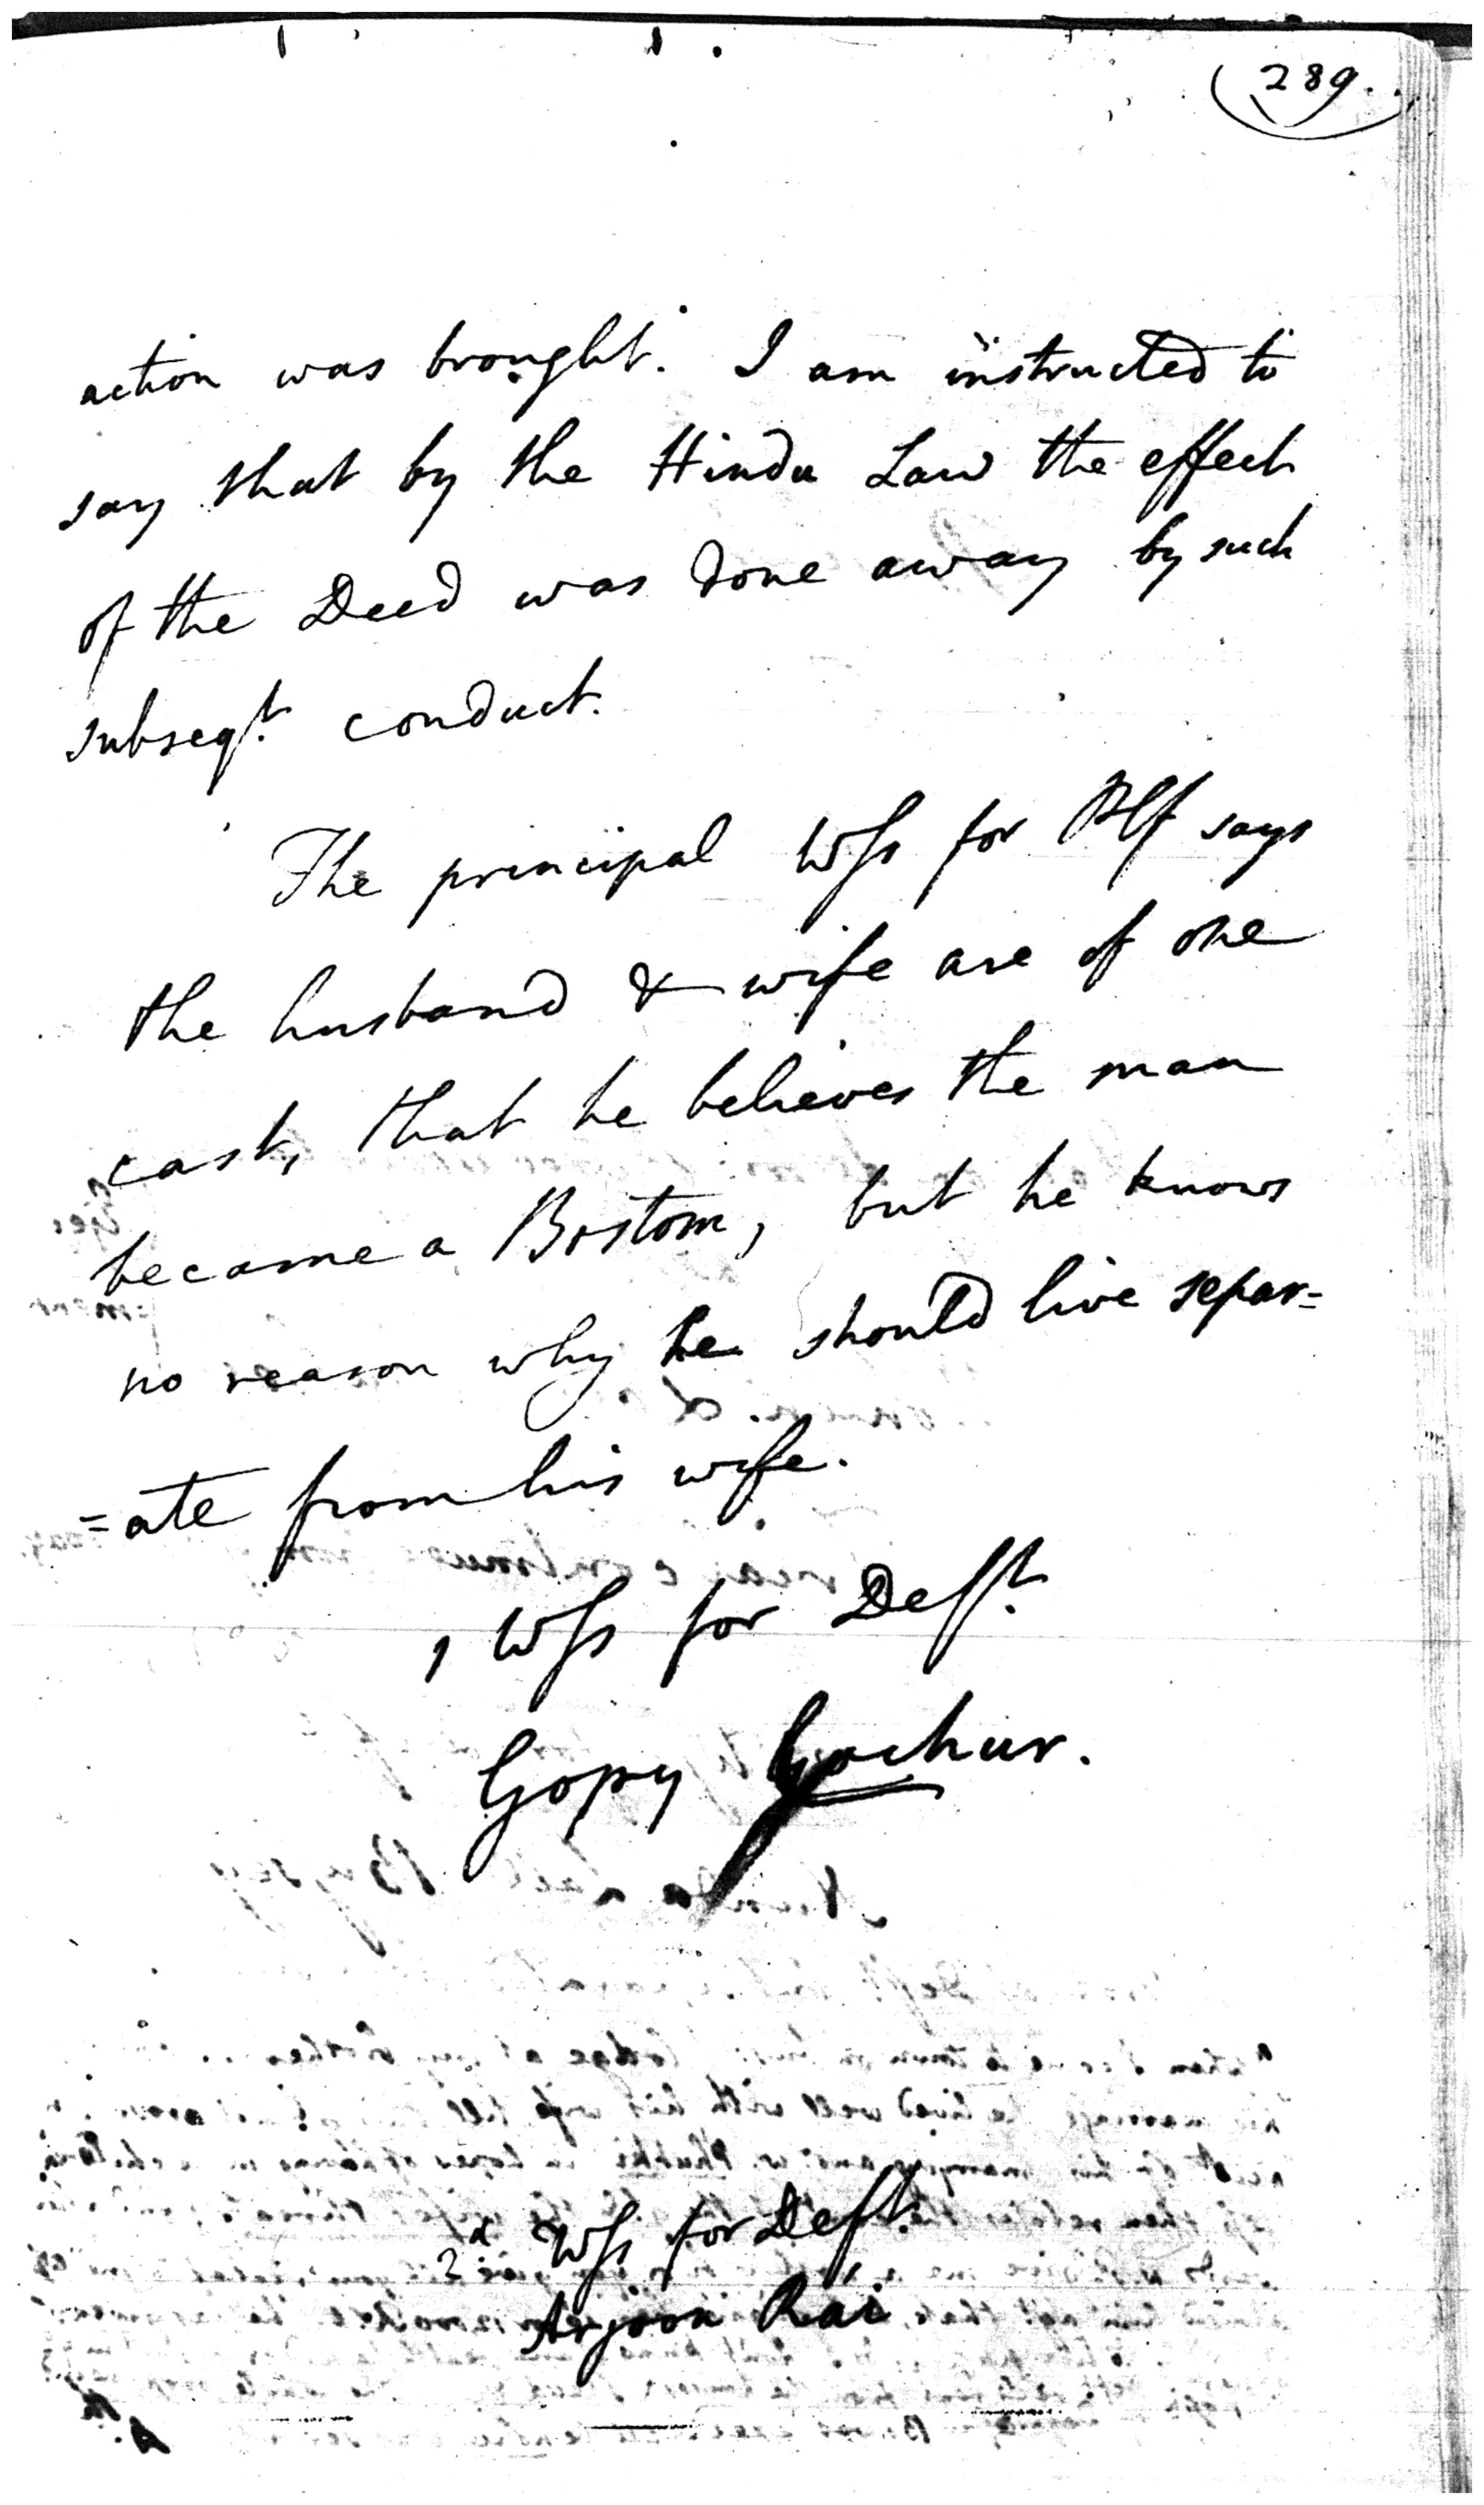 289.
action was brought. I am instructed to
say that by the Hindu Law the effect
of the Deed was done away by such
subseqt. conduct.
The principal Wss for Plf says
the husband & wife are of one
cast, that he believes the man
became a Bostom, but he knows
no reason why he should live separ=
=ate from his wife.
1 Wss for Deft.
Gopy Gochur.
2d Wss for Deft.
Arjoon Rai